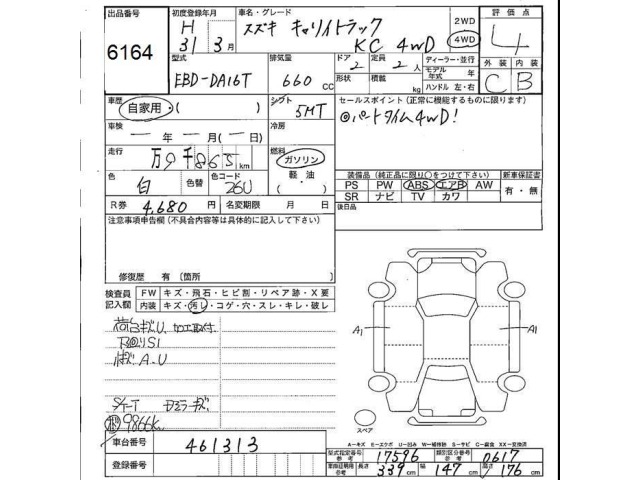 出品番号
6164
初度登録年月
H
31年3月
車名・グレード
スズキ キャリイトラック
KC 4WD
2WD
4WD
評価点
4
外装 内装
C B
型式
EBD-DA16T
排気量
660 CC
ドア 2
定員 2人
形状
積載 kg
ディーラー・並行
モデル年式 年
ハンドル 左・右
車歴
自家用 ( )
シフト
5MT
セールスポイント(正常に機能するものに限ります)
◎パートタイム4WD!
車検
ー年ー月(ー日)
冷房
走行
万9千865km
燃料
ガソリン
軽油
・
色
白
色替
色コード
26U
装備品(純正品に限り○をつけて下さい)
新車保証書
PS PW ABS エアB AW
SR ナビ TV カワ
有・無
R券 4,680円
名変期限 月 日
後日品
注意事項申告欄(不具合内容等は具体的に記入して下さい)
修復歴 有(箇所 )
検査員記入欄
FW キズ・飛石・ヒビ割・リペア跡・X要
内装 キズ・汚れ・コゲ・穴・スレ・キレ・破レ
荷台キズU、加工取付
下回りS1
A.U
ミラーキズ
9866k
A1
A1
スペア
車台番号
461313
登録番号
A−キズ E−エクボ U−凹み W−補修跡 S−サビ C−腐食 XX−交換済
型式指定番号 参考
17596
類別区分番号 参考
0617
車庫証明用 参考
長さ 339cm
幅 147cm
高さ 176cm